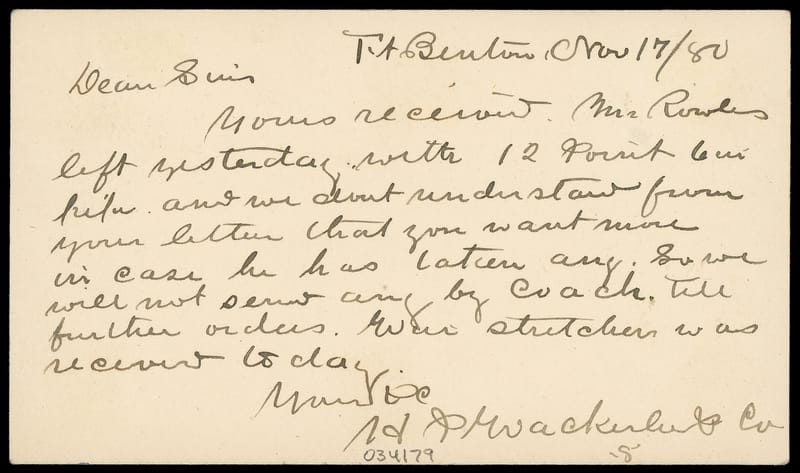 Ft Benton Nov 17/80
Dear Sirs
Yours received. Mr Rowles
left yesterday. with 12 Point
and we dont understand from
your letter that you want more
in case he has taken any. So we
will not send any by Coach. till
further orders. Your stretcher was
received to day.
Yours &c
H J Wackerlin & Co
034179